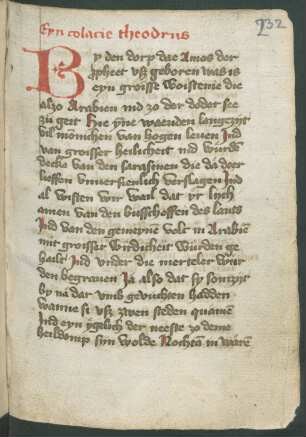 Eyn colacie theodrus
132
By den dorp dae Amos der
ꝓpheet vß geboren was is
eyn groisse woistenie die
alzo Arabien ind zo der dodet see
zu geit Hye yne waenden langezijt
vil mōnichen van hogen leuen Ind
van groisser heilicheit ind wurdē
decke van den sarasinen die da doer
lieffen verslagen Ind
al wisten wir wail dat yr lych
amen van den busschoffen des lants
Ind van den gemeyne volc in Arabiē
mit groisser wirdicheit wurden ge
hailt Ind vnder die merteler wur
den begrauen Ja also dat sy
by na dat vmb geuochten hadden
wanne si vß zwen steden quamē
Ind eyn ygelich der neeste zo deme
heildomp syn wolde Nochtā in warē